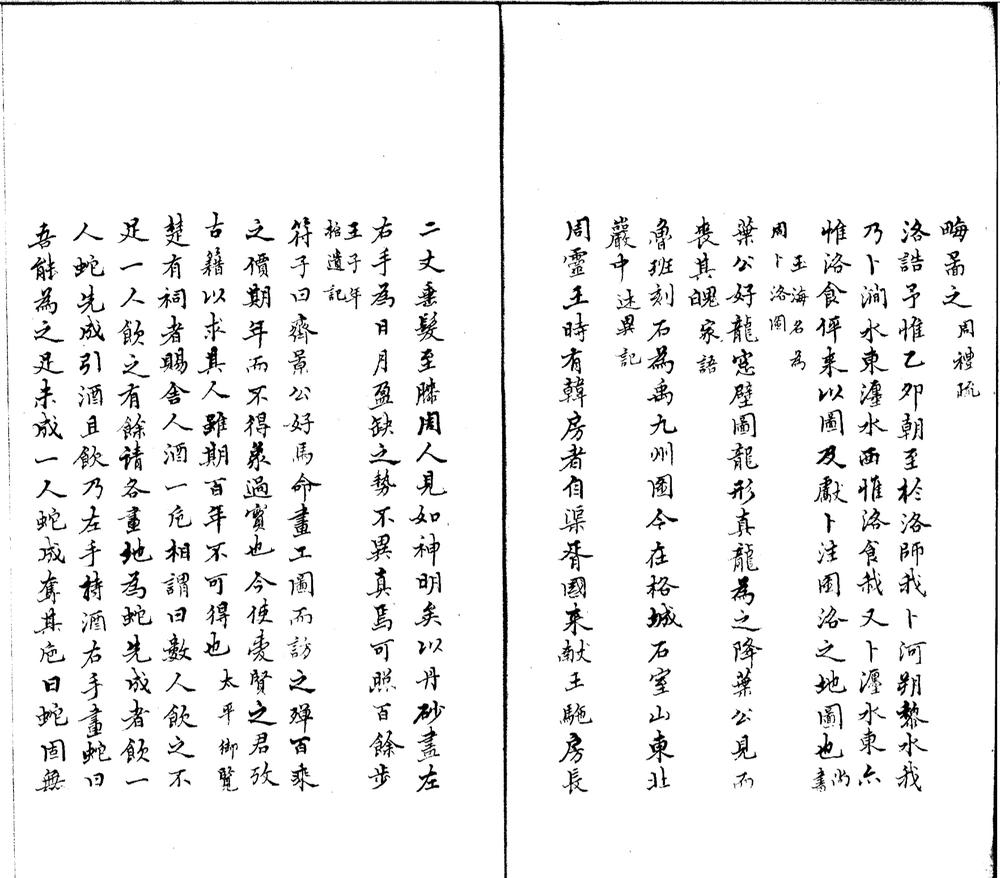 畮啚之周禮疏
洛誥予惟乙卯朝至於洛師我卜河朔黎水我
乃卜澗水東瀍水西惟洛食哉又卜瀍水東亦
惟洛食伻来以圖及獻卜注圖洛之地圖也尚書
周卜洛圖
玉海名為
葉公好龍窓壁圖龍形真龍為之降葉公見而
喪其魂家語
魯班刻石為禹九州圖今在格城石室山東北
巖中述異記
周靈王時有韓房者自渠胥國来献玉駞房長
二丈垂髮至膝周人見如神明矣以丹砂畫左
右手為日月盈缺之勢不異真焉可照百餘步
王子年
拾遺記
符子曰齊景公好馬命畫工圖而訪之殫百乘
之價期年而不得葢過實也今使愛賢之君攷
古籍以求其人雖期百年不可得也太平御覽
楚有祠者賜舍人酒一卮相謂曰數人飲之不
足一人飲之有餘請各畫地為蛇先成者飲一
人蛇先成引酒且飲乃左手持酒右手畫蛇曰
吾能為之足未成一人蛇成奪其卮曰蛇固無